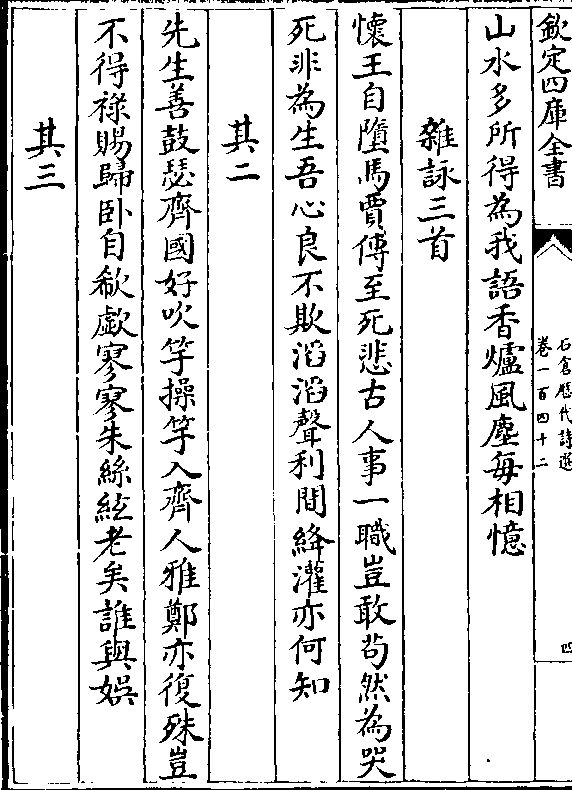 欽定四庫全書
石倉歴代詩選
卷一百四十二
四
山水多所得為我語香爐風塵每相憶
雜詠三首
懷王自墮馬賈傅至死悲古人事一職豈敢茍然為哭
死非為生吾心良不欺滔滔聲利間絳灌亦何知
其二
先生善鼓瑟齊國好吹竽操竽入齊人雅鄭亦復殊豈
不得祿賜歸卧自欷歔寥寥朱絲絃老矣誰與娯
其三